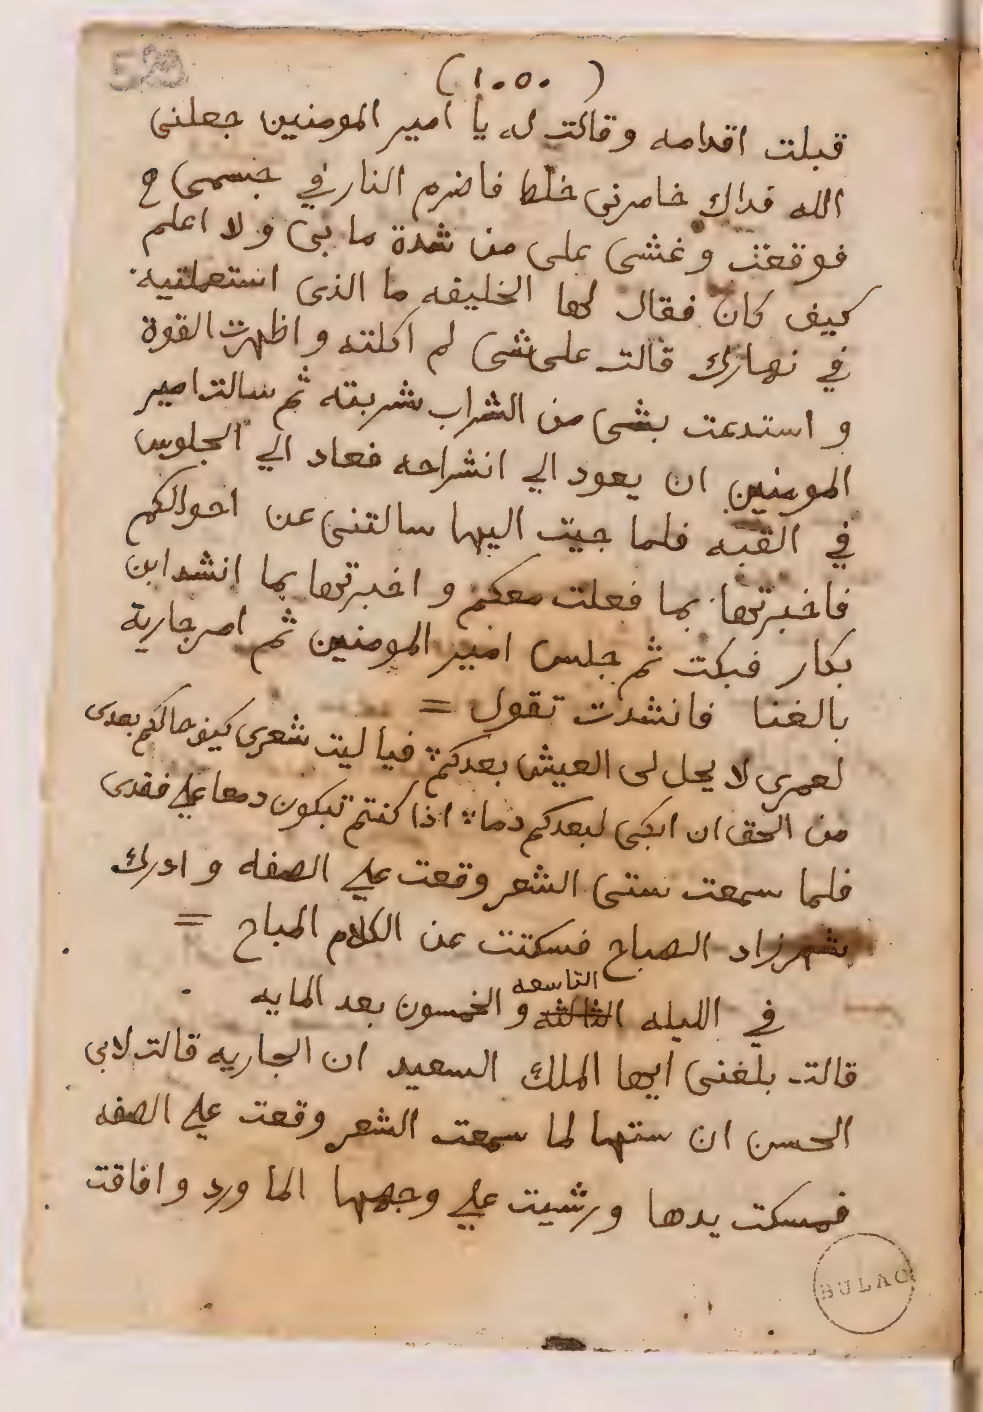 529
( ١٠٥٠ )
قبلت اقدامه وقالت له يا امير المومنين جعلنى
الله فداك خامرنى خلط فاضرم النار في جسمى
فوقعت وغشى على من شدة ما بى ولا اعلم
كيف كان فقال لها الخليفه ما الذى استعملتيه
في نهارك قالت على شى لم اكلته واظهرت القوة
و استدعت بشى من الشراب شربته ثم سالت امير
المومنين ان يعود الي انشراحه فعاد الي الجلوس
في القبه فلما جيت اليها سالتنى عن احوالكم
فاخبرتها بما فعلت معكم و اخبرتها بما انشد ابن
بكار فبكت ثم جلس امير المومنين ثم امر جارية
بالغنا فانشدت تقول =
لعمرى لا يحل لى العيش بعدكم فيا ليت شعرى كيف حالكم بعدى
من الحق ان ابكى لبعدكم دما اذا كنتم تبكون دمعا علي فقدى
فلما سمعت ستى الشعر وقعت علي الصفه و ادرك
شهرزاد الصباح فسكتت عن الكلام المباح =
في الليله الثالثه التاسعه و الخمسون بعد المايه
قالت بلغنى ايها الملك السعيد ان الجاريه قالت لابى
الحسن ان ستها لما سمعت الشعر وقعت علي الصفه
فمسكت يدها ورشيت علي وجهها الما ورد وافاقت
BULAC